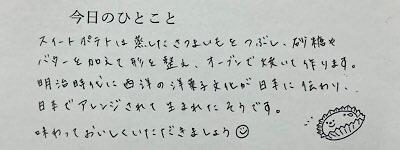 今日のひとこと
スイートポテトは蒸したさつまいもをつぶし、砂糖や
バターを加えて形を整え、オーブンで焼いて作ります。
明治時代に西洋の洋菓子文化が日本に伝わり、
日本でアレンジされて生まれたそうです。
味わっておいしくいただきましょう